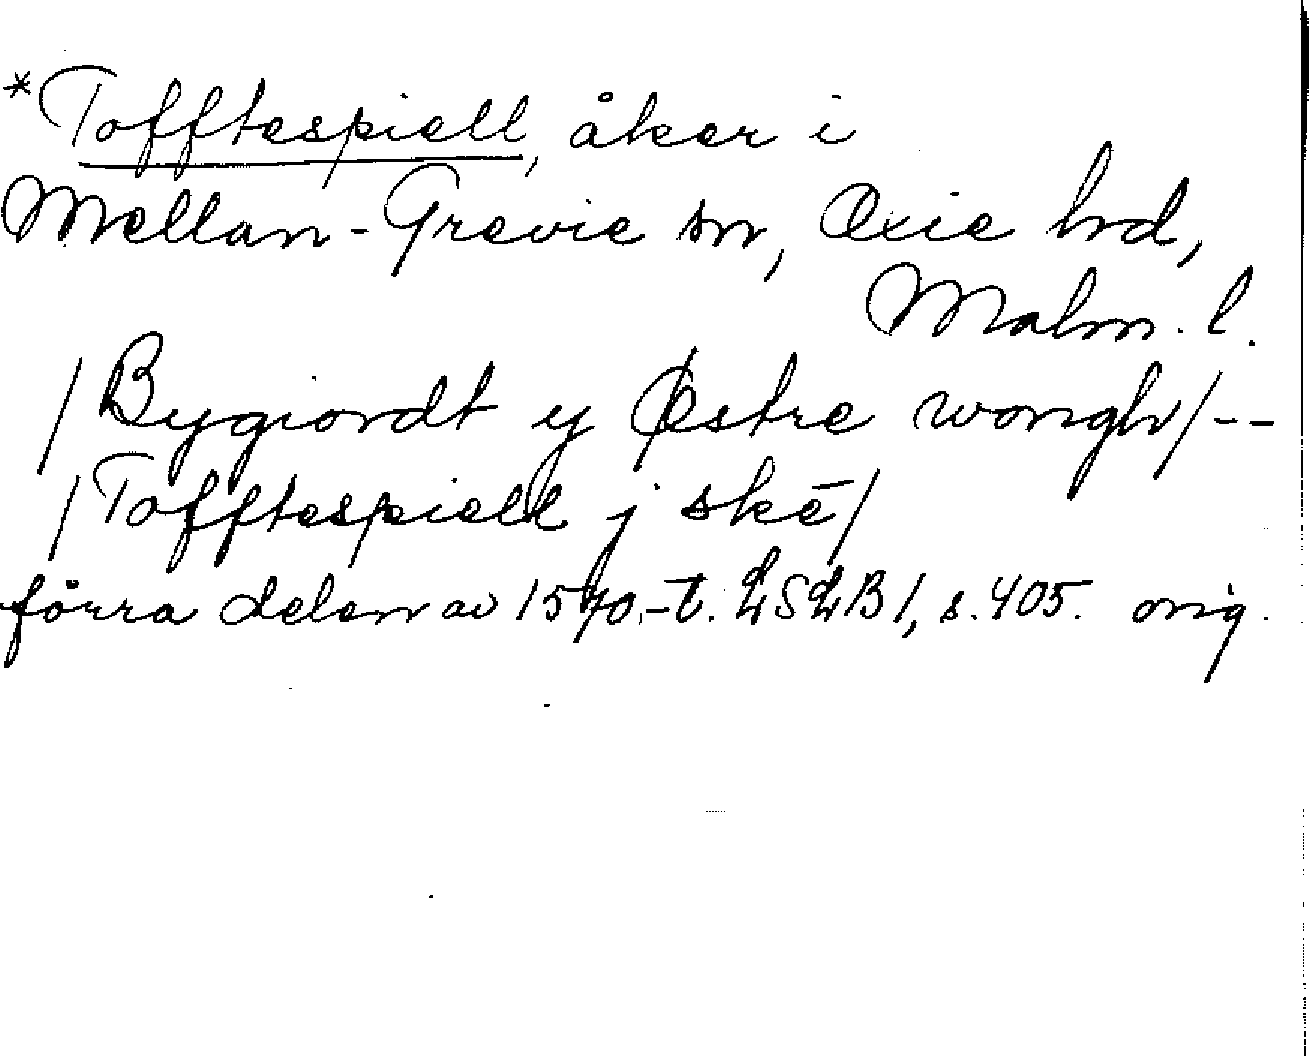 *Tofftespiell, åker i
Mellan-Grevie sn, Oxie hd,
Malm. l.
/Bygiordt y Østre wongh/--
/Tofftespiell j skē/
förra delen av 1570-t. LSLB1, s. 405. orig.